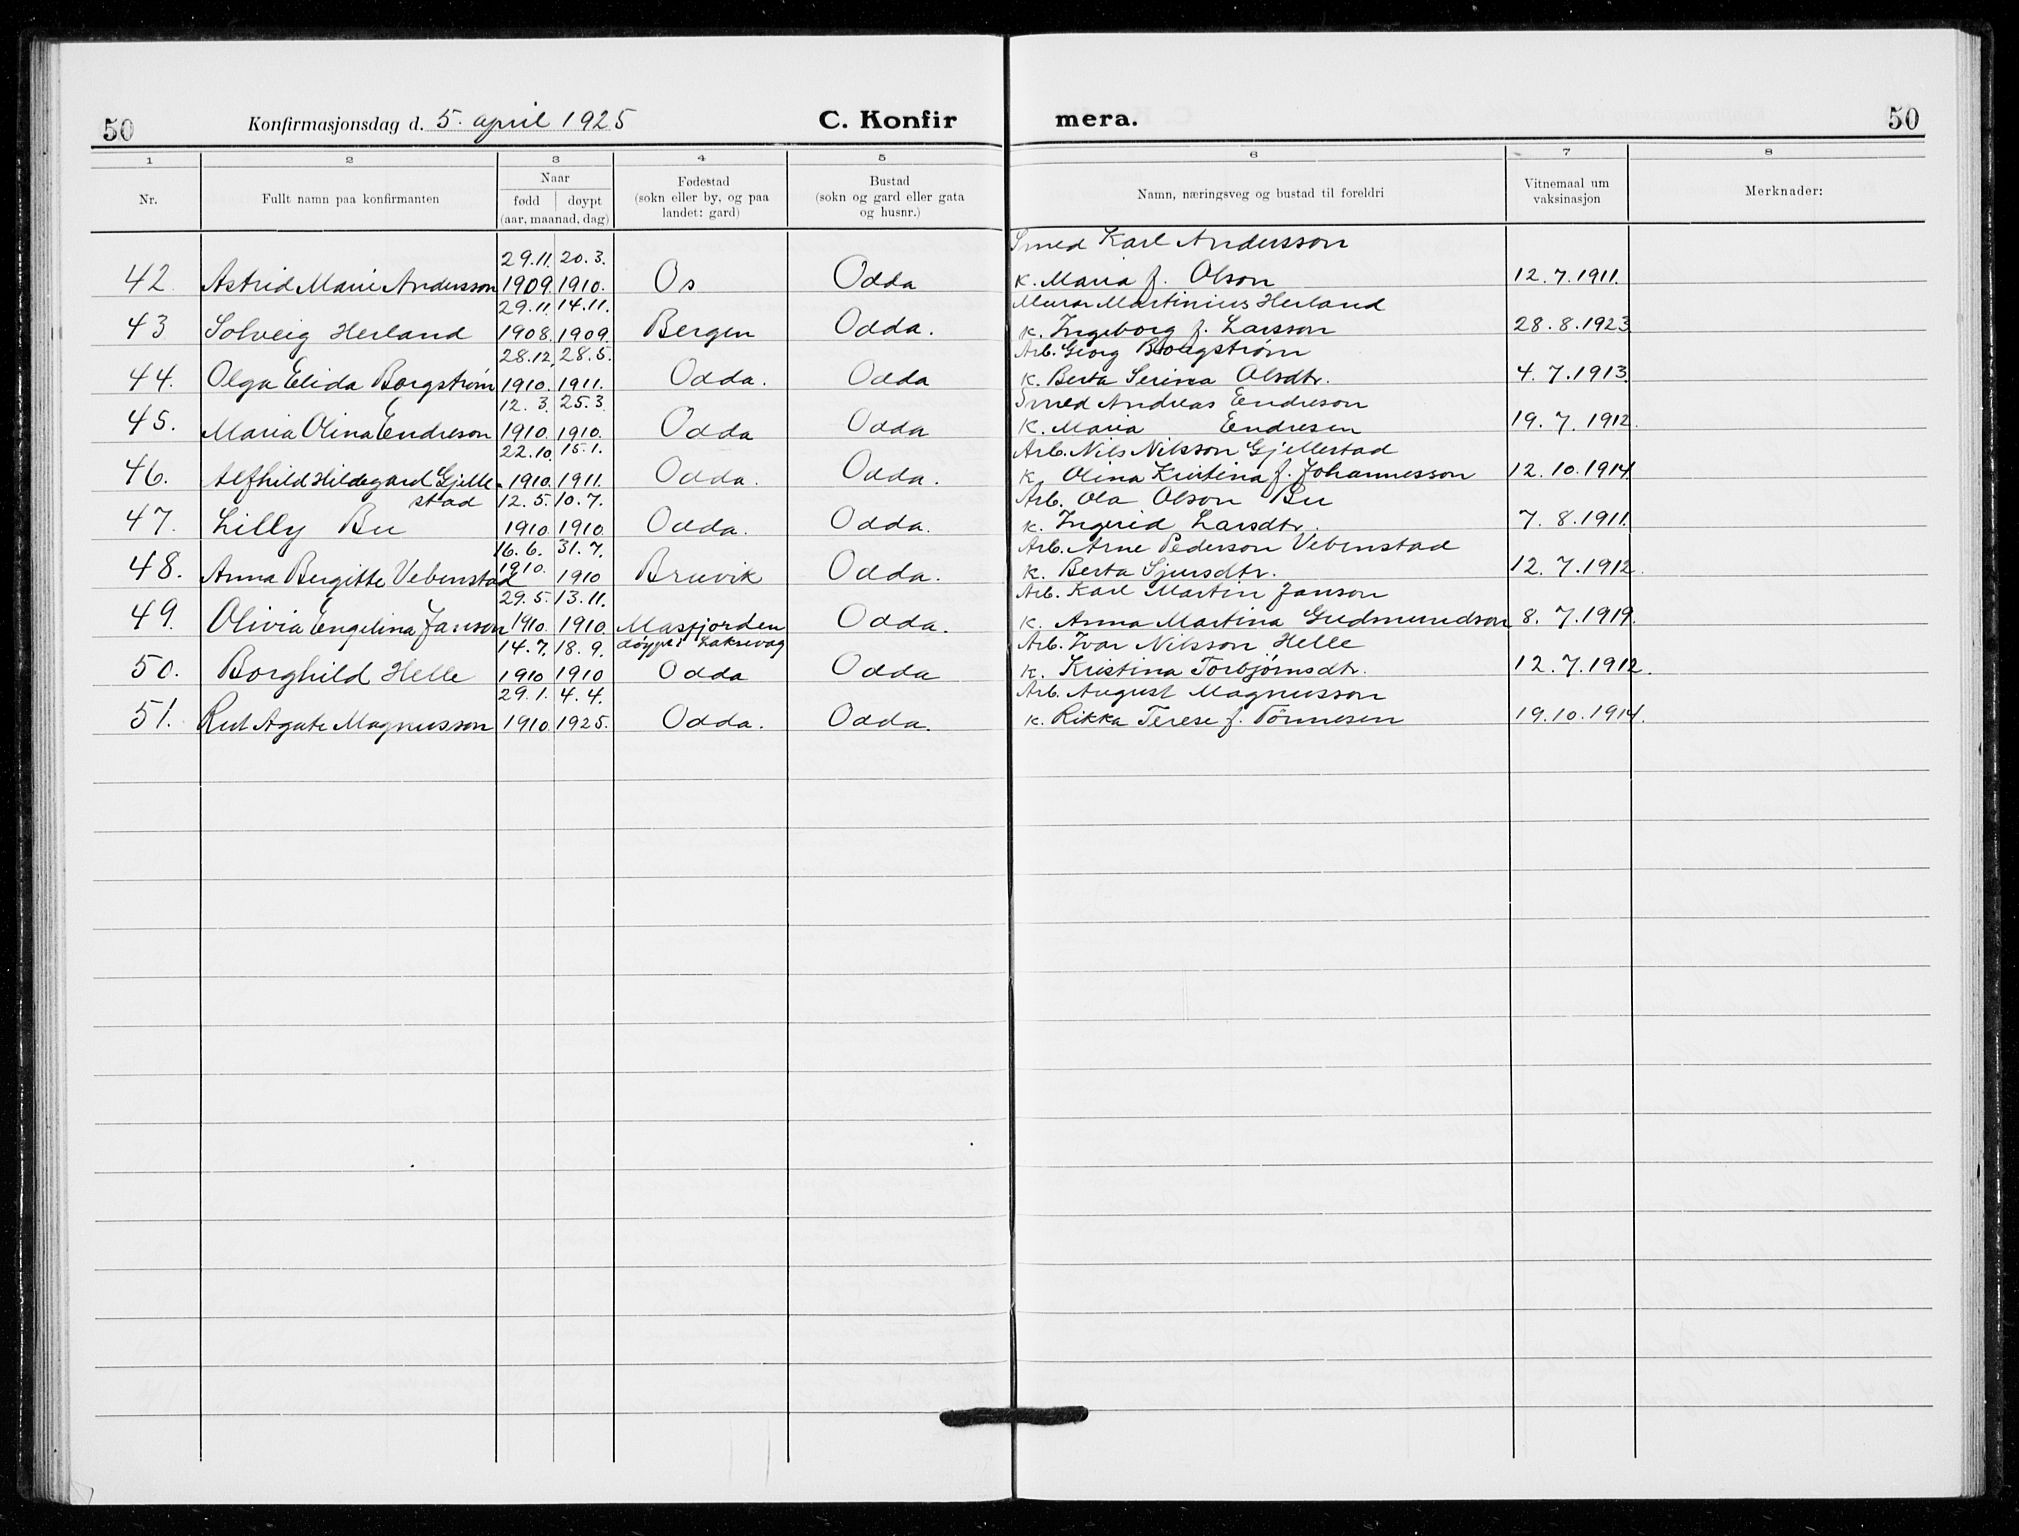 50 Konfirmasjonsdag d. 5. april 1925 C. Konfir mera. 50
1 2 3 4 5 6 7 8
Nr. Fullt namn paa konfirmanten Naar Fødestad Bustad Namn, næringsveg og bustad til foreldri Vitnemaal um Merknader:
født døypt (sokn eller by, og paa (sokn og gard eller gata vaksinasjon
(aar, maanad, dag) landet: gard) og husnr.)
29.11. 20.3. Smed Karl Andersson
42. Astrid Marie Andersson 1909. 1910. Os Odda K. Maria f. Olson 12.7.1911.
29.11. 14.11. Murar Martinius Herland
43 Solveig Herland 1908. 1909. Bergen Odda. K. Ingeborg f. Larsson 28.8.1923
28.12. 28.5. Arb. Georg Borgstrøm
44. Olga Elida Borgstrøm 1910. 1911. Odda. Odda K. Berta Serina Olsdtr. 4.7.1913.
12.3. 25.3. Smed Andreas Endreson
45. Maria Olina Endreson 1910. 1910. Odda Odda K. Maria Endresen 19.7.1912.
22.10. 15.1. Arb. Nils Nilsson Gjellestad
46. Alfhild Hildegard Gjelle- 1910. 1911. Odda. Odda. K. Olina Kristina f. Johannesson 12.10.1914.
stad 12.5. 10.7. Arb. Ola Olson Bu
47. Lilly Bu 1910. 1910. Odda. Odda. K. Ingerid Larsdtr. 7.8.1911.
16.6. 31.7. Arb. Arne Pederson Vebenstad
48. Anna Bergitte Vebenstad 1910. 1910 Bruvik Odda. K. Berta Sjursdtr. 12.7.1912.
29.5. 13.11. Arb. Karl Martin Janson
49. Olivia Engelina Janson 1910. 1910. Masfjorden Odda. K. Anna Martina Gudmundson 8.7.1919.
14.7. 18.9. døypt i Laksevag Arb. Ivar Nilsson Helle
50. Borghild Helle 1910 1910 Odda Odda K. Kristina Torbjørnsdtr. 12.7.1912.
29.1. 4.4. Arb. August Magnusson
51. Rut Agate Magnusson 1910. 1925. Odda. Odda. K. Rikka Terese f. Tönnesen 19.10.1914.